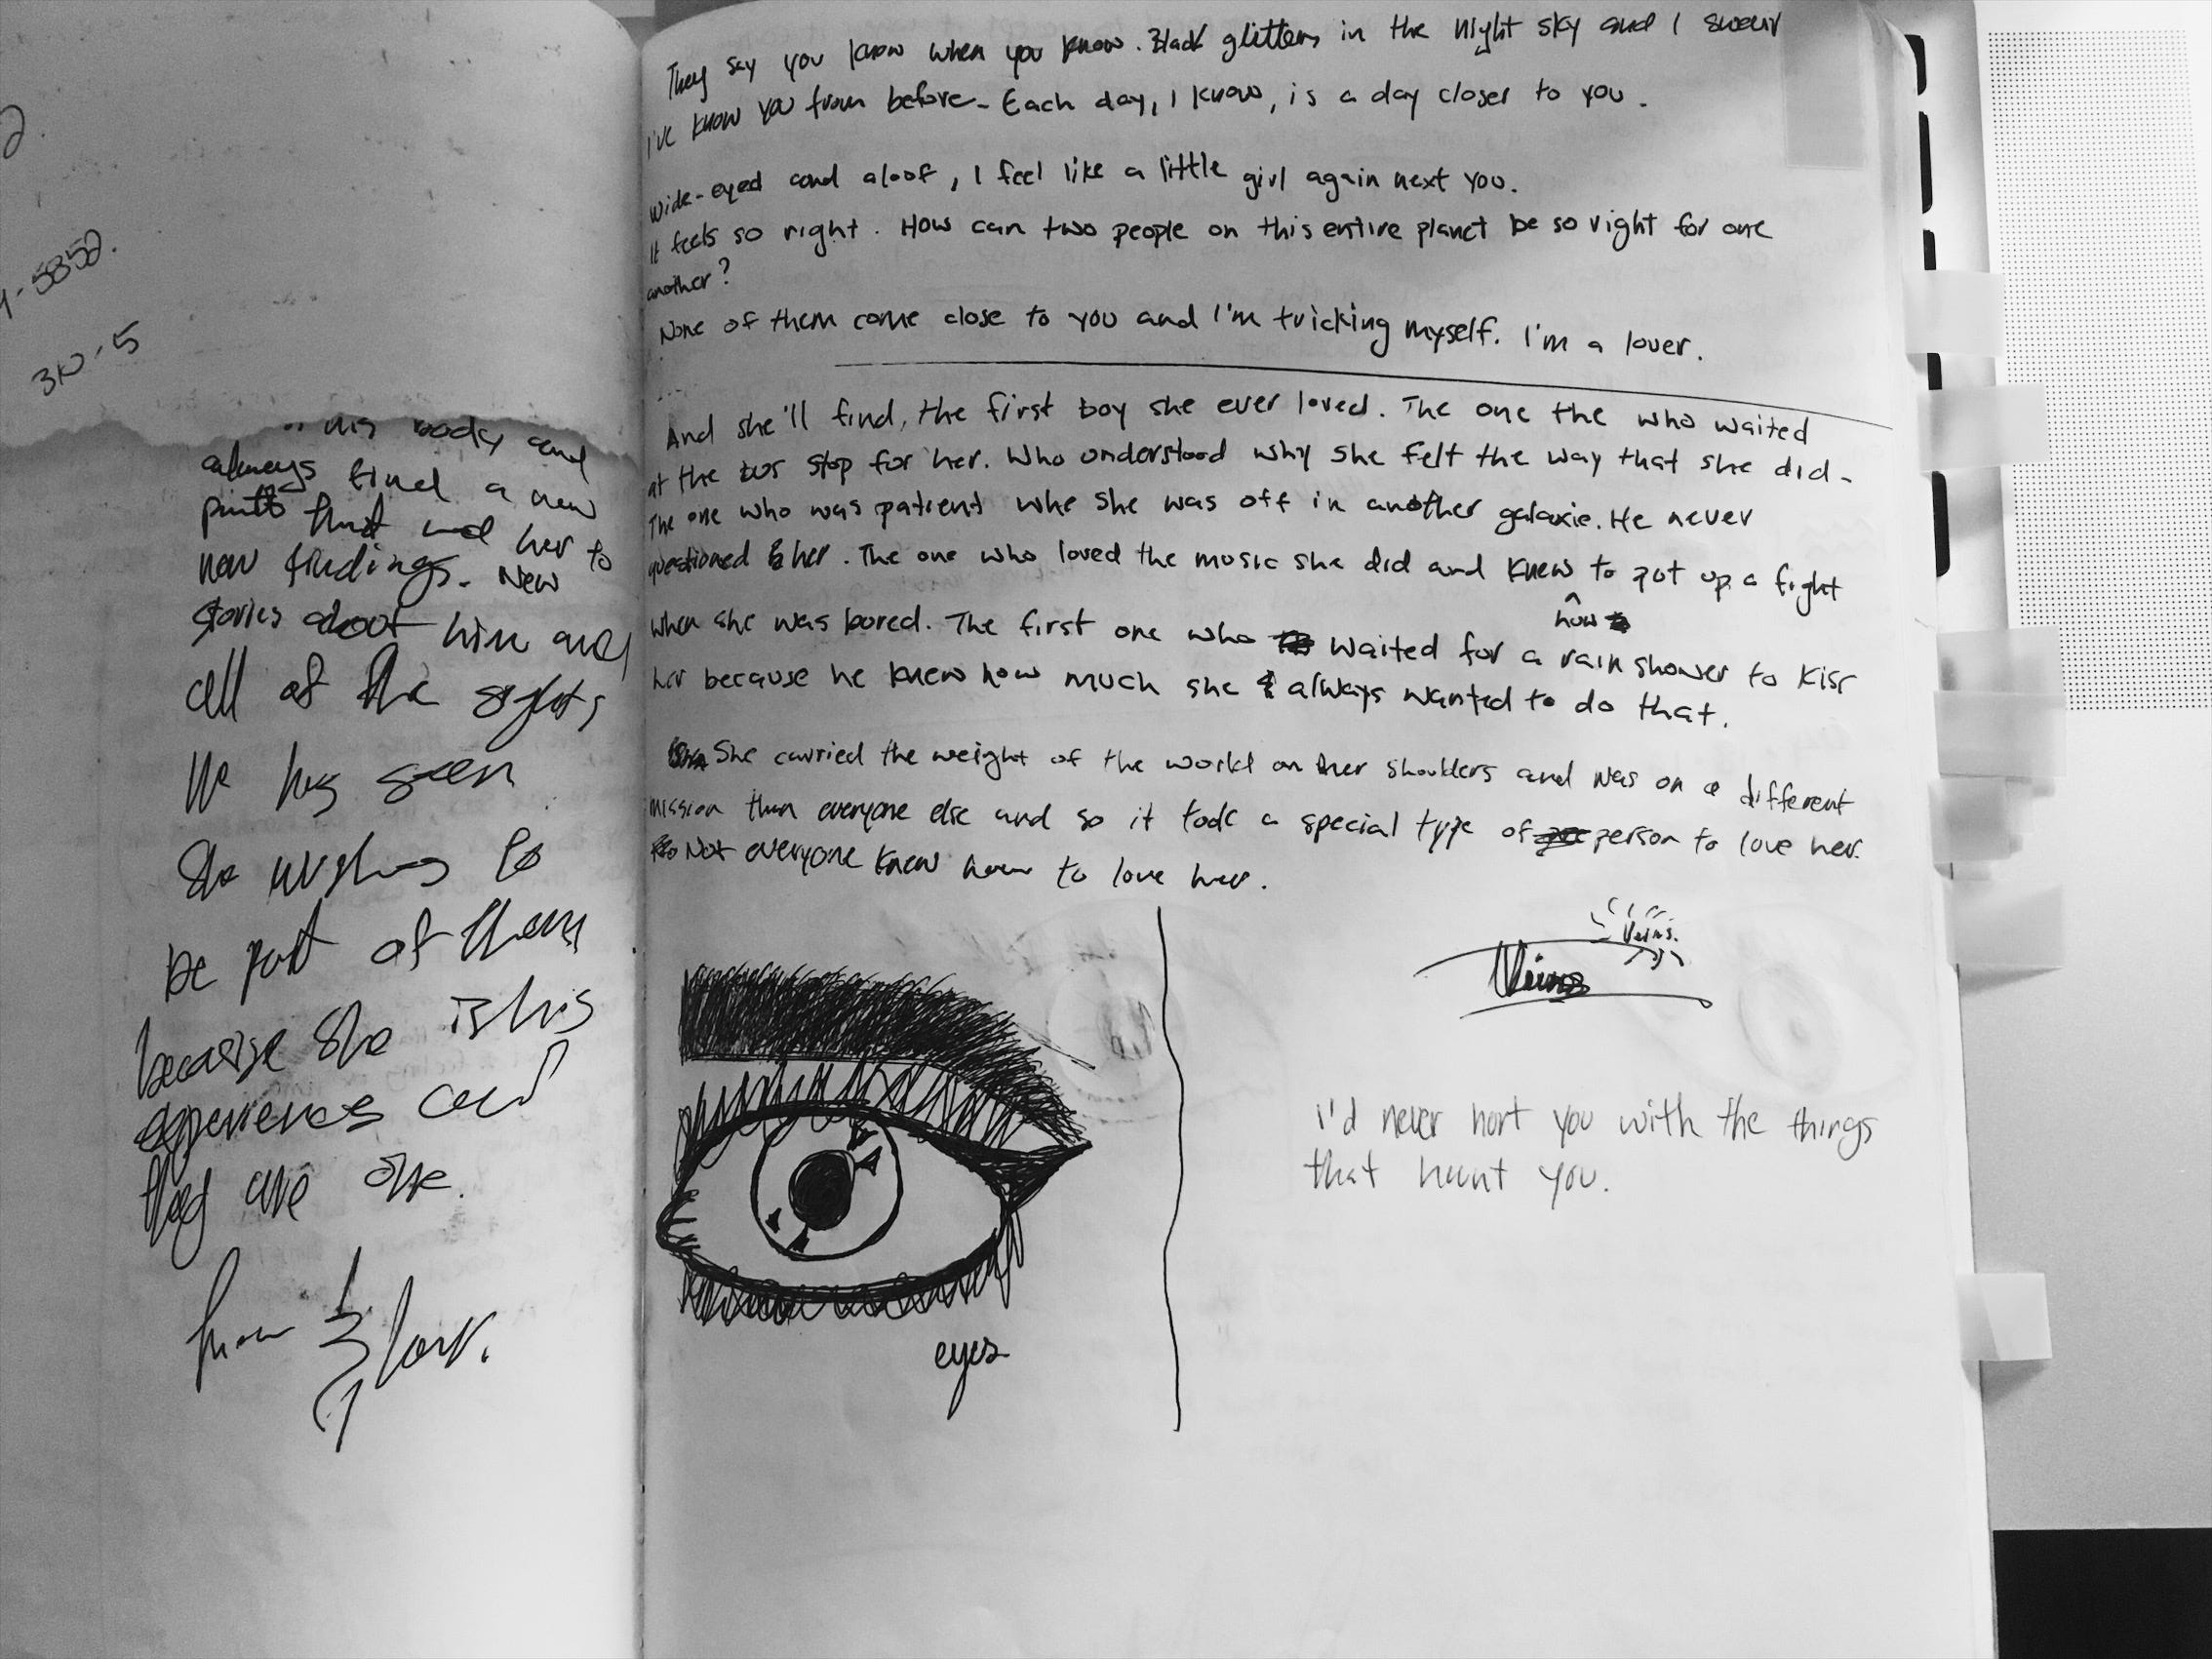 -5852.
310-5
his body and
always find a new
that led her to
new findings. New
stories about him and
all of the sights
he has seen
She wishes to
be part of them
because she is his
experiences and
they are one.
from
They say you know when you know. Black glitters in the night sky and I swear
I've know you from before. Each day, I know, is a day closer to you.
Wide-eyed and aloof, I feel like a little girl again next you.
It feels so right. How can two people on this entire planet be so right for one
another?
None of them come close to you and I'm tricking myself. I'm a lover.
And she'll find, the first boy she ever loved. The one the who waited
at the bus stop for her. Who understood why she felt the way that she did-
The one who was patient whe she was off in another galaxie. He never
questioned her. The one who loved the music she did and knew to put up a fight
how
when she was bored. The first one who waited for a rain shower to kiss
her because he knew how much she always wanted to do that.
She carried the weight of the world on her shoulders and was on a different
mission than everyone else and so it took a special type of person to love her.
Not everyone knew how to love her.
Veins.
Veins
I'd never hurt you with the things
that haunt you.
eyes